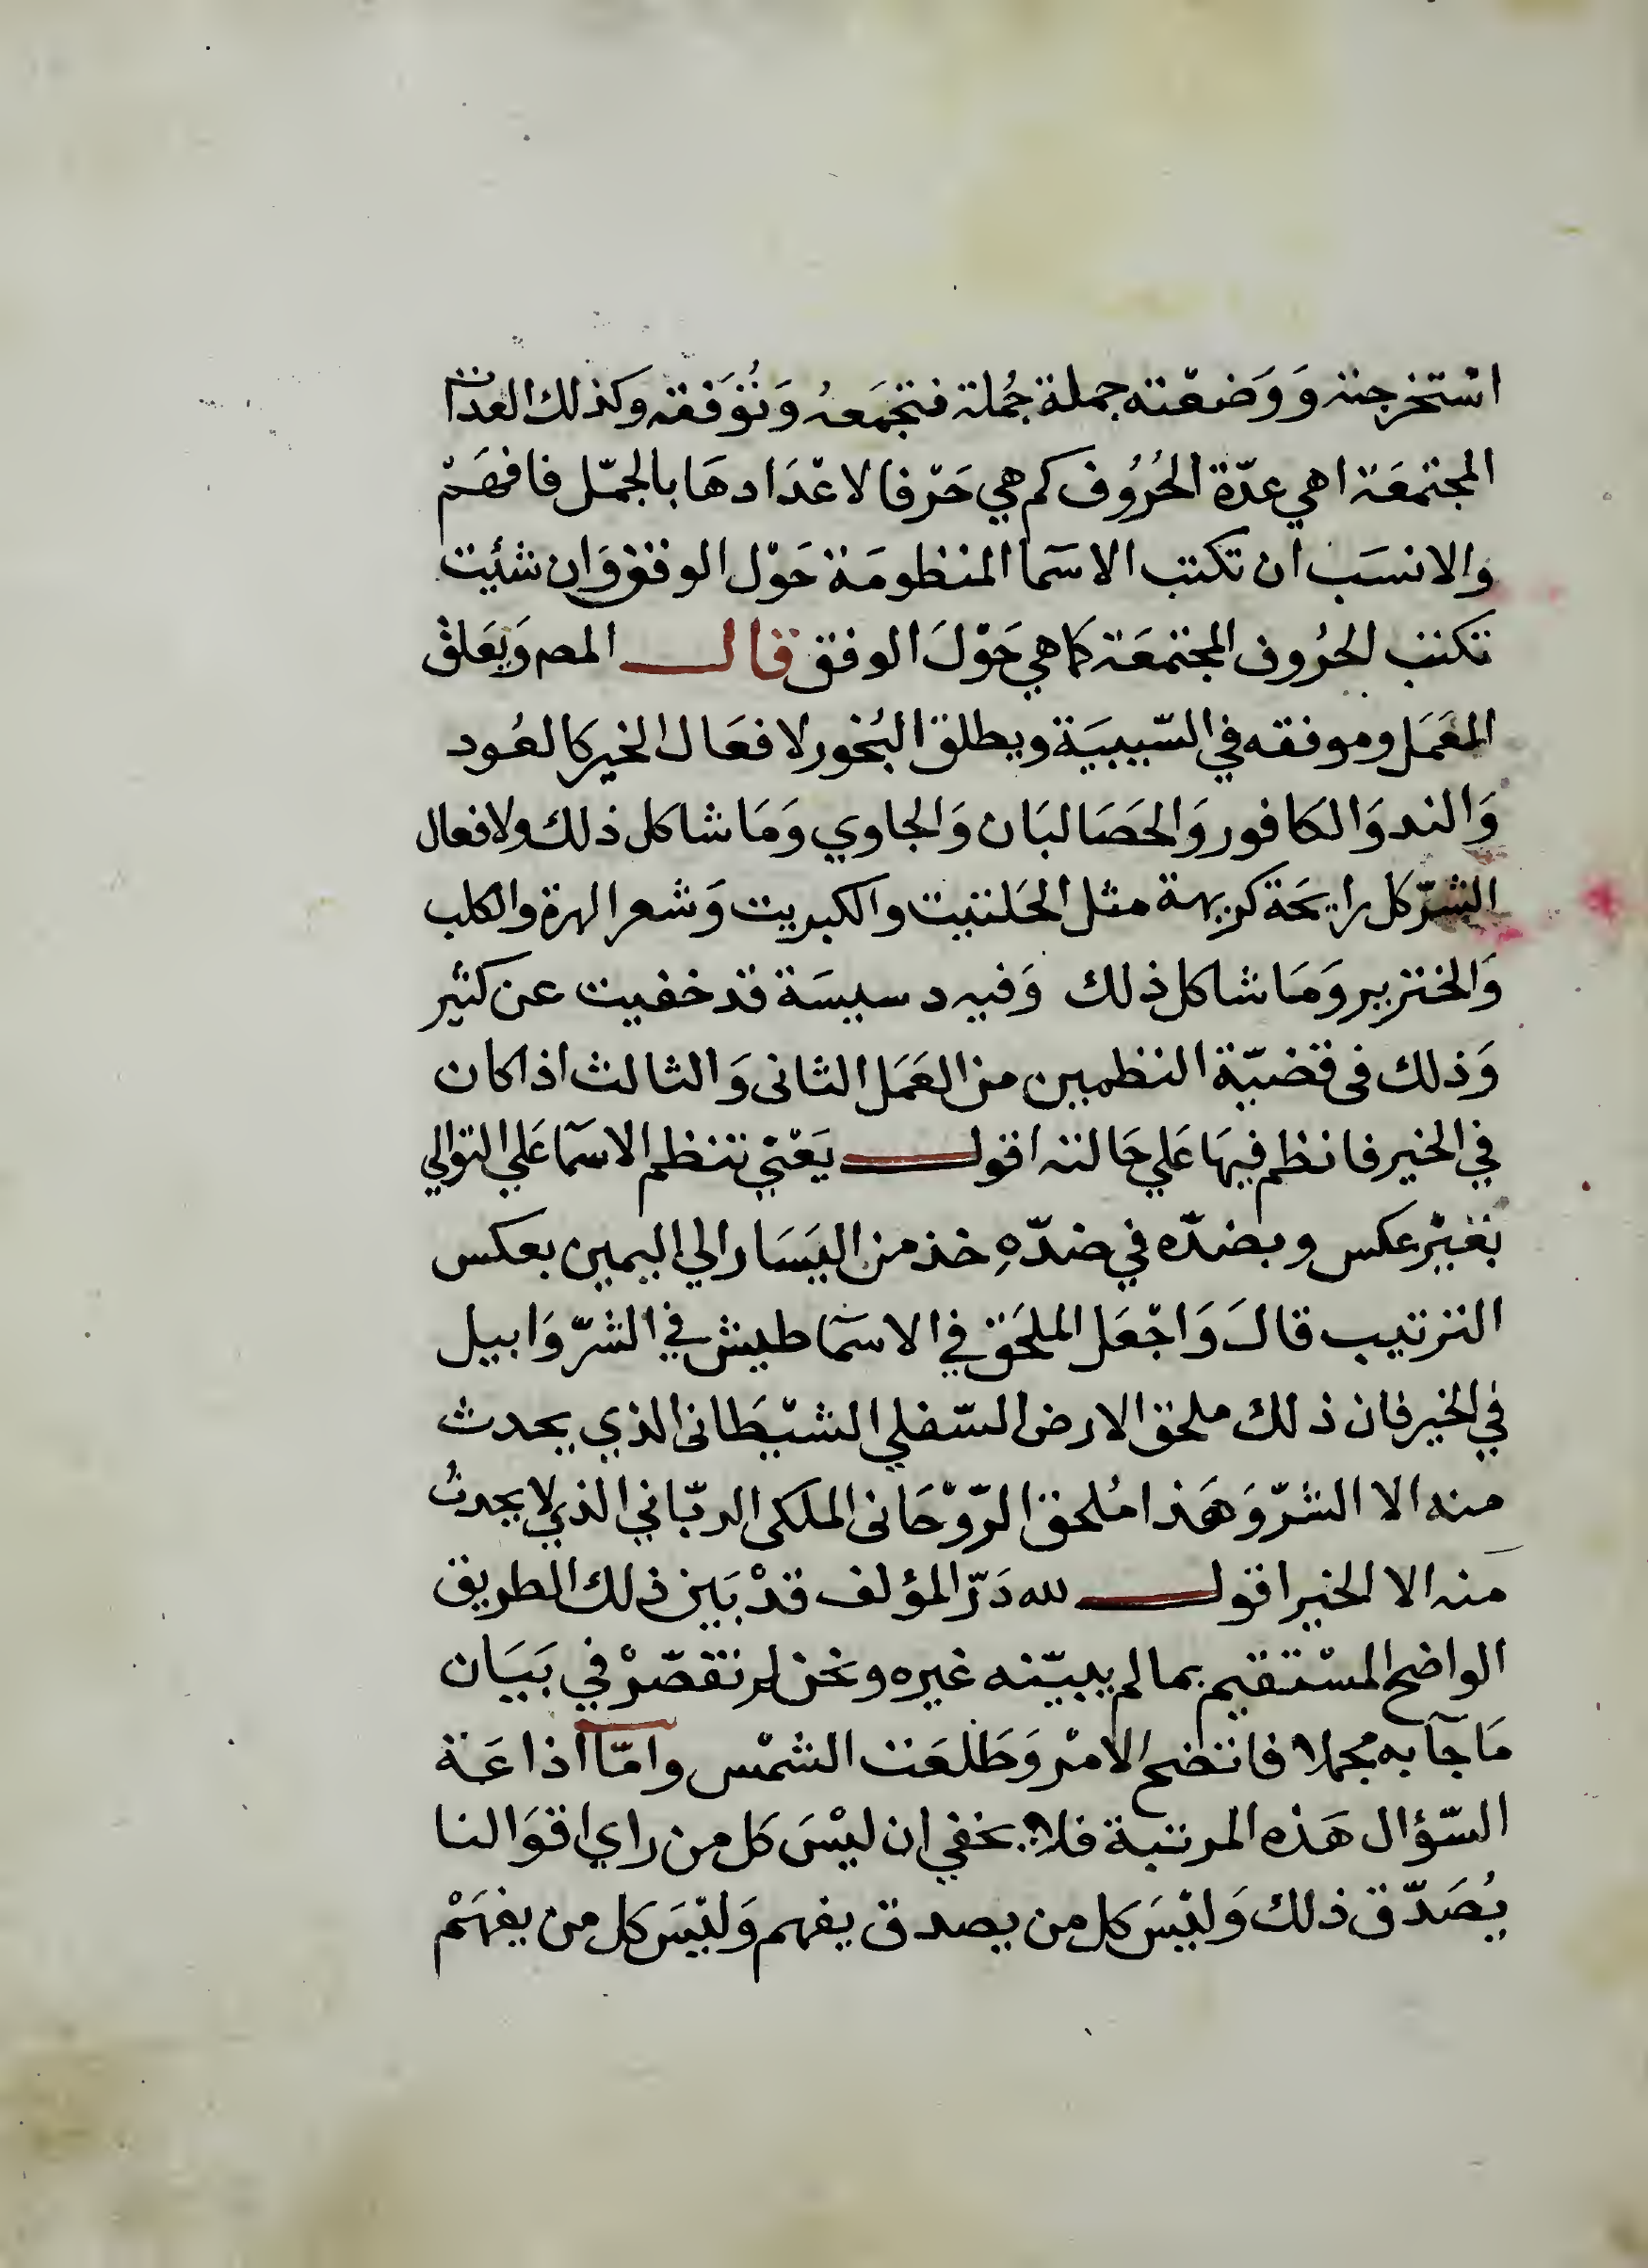 استخرجته وَوَضعْته جملة جُملة فتجمَعهُ وَتُوَفقه وكذلك العدات
المجتمعَة اهي عدّة الحُرُوف كم هي حَرْفا لا عْدَادهَا بالجمّل فافهَمْ
والانسَب ان تكتب الاسمآ المنظومَة حَوْل الوفق وَان شئيت
تكتب الحرُوف المجتمعَة كما هي حَوْلَ الوفق قال المصم وَيعَلقْ
المعَمَل وموفقه في السّبيبيَة ويطلق البُخور لافعَال الخير كالعُود
وَالند وَالكافور وَالحَصَالبَان وَالجاوي وَمَا شاكل ذلك ولافعال
الشرّ كل رايحَة كريهة مثل الحَلتيت والكبريت وَشعر الهرة والكلب
وَالخنزير وَمَا شاكل ذلك وَفيه دسيسَة قد خفيت عن كثير
وَذلك فى قضيّة النظمين من العَمَل الثانى وَالثالث اذا كان
في الخير فانظم فيهَا عَلي حَالته اقول يَعْني تنظم الاسمآ عَلي التوالي
بَغيْر عكس وبضدّه في ضدّهِ خذ من اليَسَار الي اليمين بعكس
الترتيب قالَ وَاجْعَل الملحَق في الاسمآ طيش في الشرّ وَابيل
في الخير فان ذلك ملحق الارض السّفلي الشيْطانى الذي يحدث
منه الا الشرّ وَهَذا مُلحق الرّوْحَانى الملكى الربّاني الذي لا يحدثُ
منه الا الخير اقول لله دَرّ المؤلف قدْ بَين ذلك الطريق
الواضح المسْتقيم بما لم يبيّنه غيره ونحن لم نقصّرْ في بَيَان
مَا جآ به مجملا فاتضح الامْر وَطَلعَت الشمْس وامّا اذاعَة
السّؤال هَذه المرتبة فلا يخفي ان ليْسَ كل من راي اقوَالنا
يُصَدّق ذلك وَليْسَ كل من يصدق يفهم وَليْسَ كل من يفهَمْ